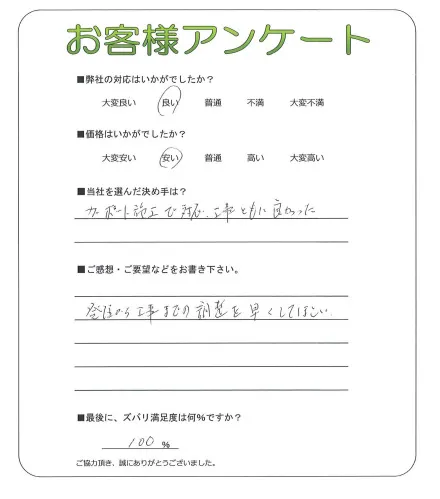 お客様アンケート
■弊社の対応はいかがでしたか？
大変良い 良い 普通 不満 大変不満
■価格はいかがでしたか？
大変安い 安い 普通 高い 大変高い
■当社を選んだ決め手は？
カーポート施工で対応、工事ともに良かった
■ご感想・ご要望などをお書き下さい。
発注から工事までの調整を早くしてほしい。
■最後に、ズバリ満足度は何％ですか？
100 %
ご協力頂き、誠にありがとうございました。